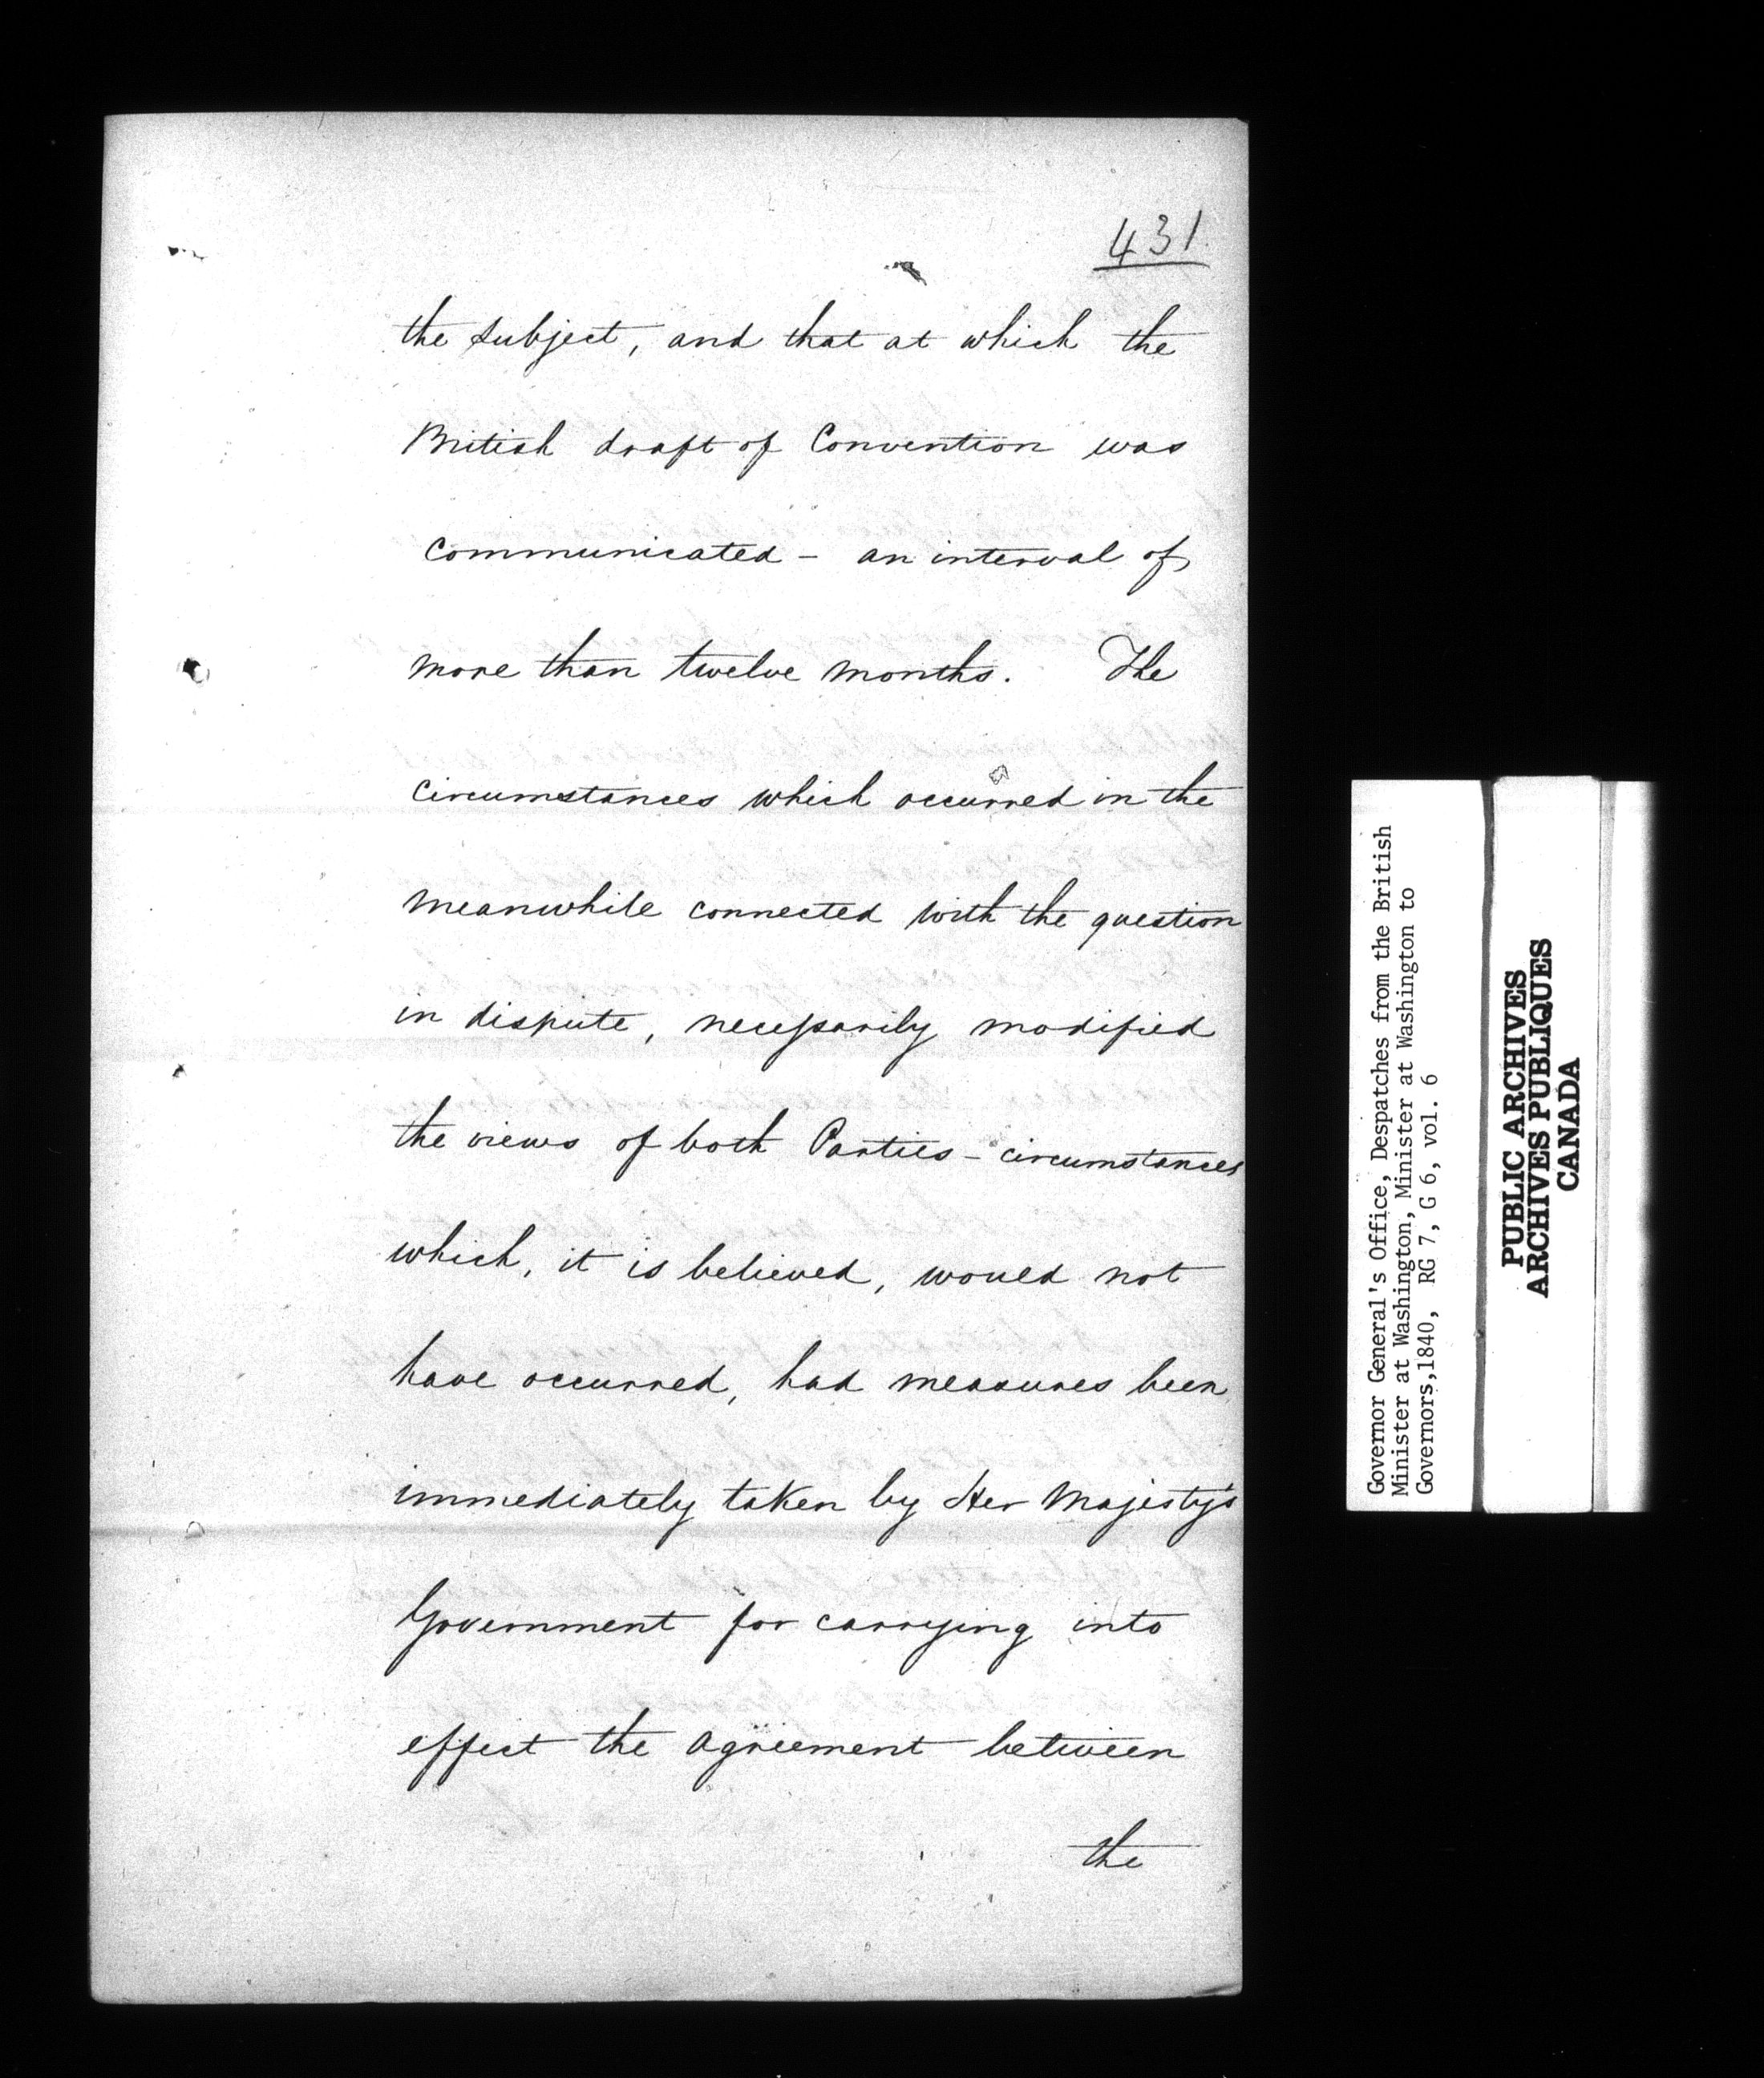 431
the subject, and that at which the
British draft of Convention was
communicated – an interval of
more than twelve months. The
circumstances which occurred in the
meanwhile connected with the question
in dispute, necessarily modified
the views of both Parties – circumstances
which, it is believed, would not
have occurred, had measures been
immediately taken by Her Majesty's
Government for carrying into
effect the agreement between
the
Governor General's Office, Despatches from the British
Minister at Washington, Minister at Washington to
Governors,1840, RG 7, G 6, vol. 6
PUBLIC ARCHIVES
ARCHIVES PUBLIQUES
CANADA